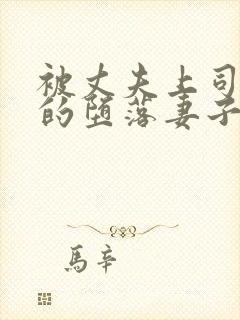 被丈夫上司
的堕落妻子
馬辛